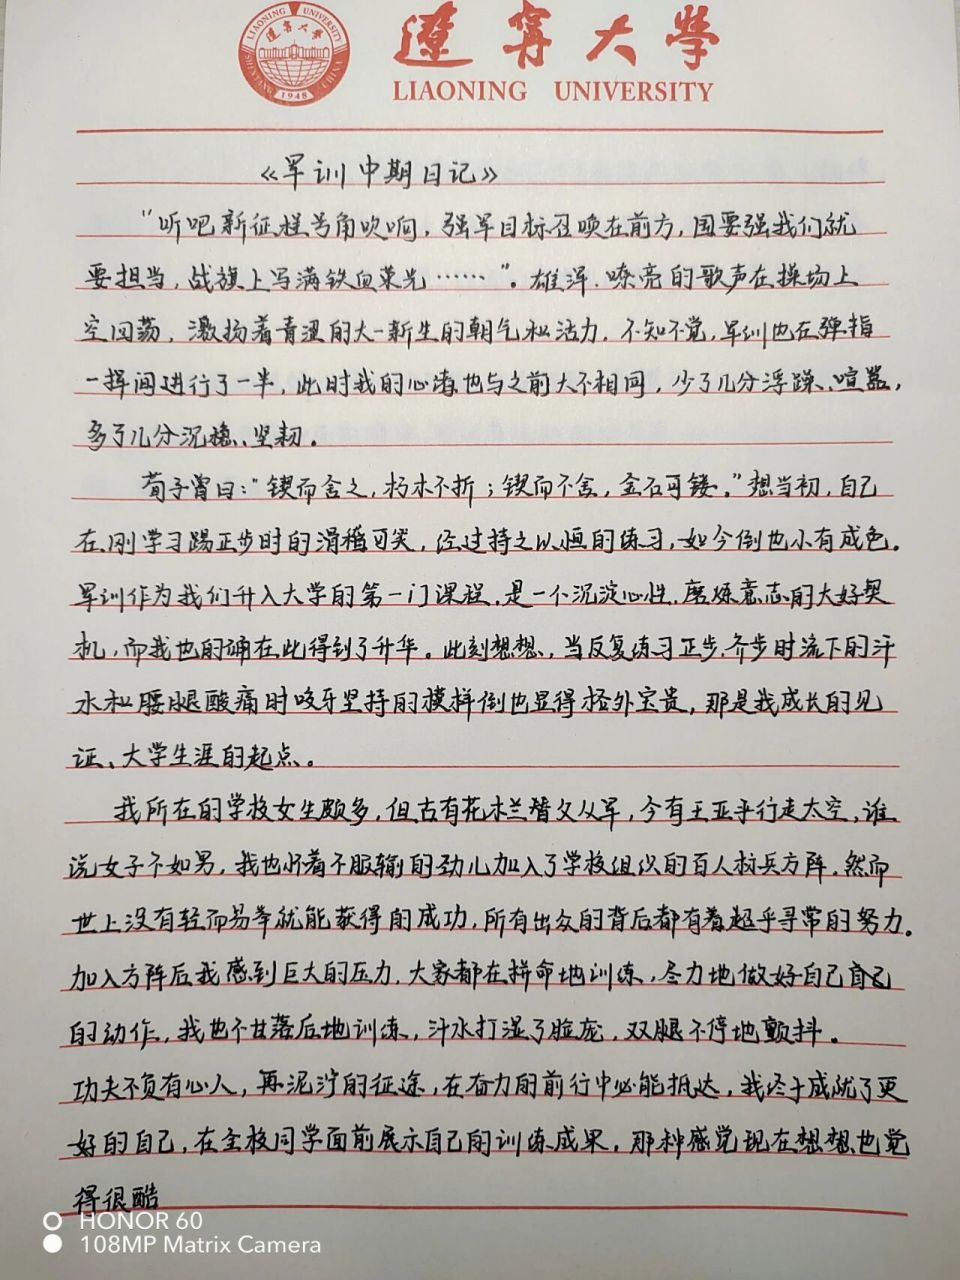 LIAONING UNIVERSITY
SHENYANG CHINA
遼寧大學
1948
遼寧大學
LIAONING UNIVERSITY
《军训中期日记》
“听吧新征程号角吹响，强军目标召唤在前方，国要强我们就
要担当，战旗上写满铁血荣光……”。雄浑、嘹亮的歌声在操场上
空回荡，激扬着青涩的大一新生的朝气和活力，不知不觉，军训也在弹指
一挥间进行了一半，此时我的心绪也与之前大不相同，少了几分浮躁、喧嚣，
多了几分沉稳、坚韧。
荀子曾曰：“锲而舍之，朽木不折；锲而不舍，金石可镂。”想当初，自己
在刚学习踢正步时的滑稽可笑，经过持之以恒的练习，如今倒也小有成色。
军训作为我们升入大学的第一门课程，是一个沉淀心性、磨炼意志的大好契
机，而我也的确在此得到了升华。此刻想想，当反复练习正步、齐步时流下的汗
水和腰腿酸痛时咬牙坚持的模样倒也显得格外宝贵，那是我成长的见
证、大学生涯的起点。
我所在的学校女生颇多，但古有花木兰替父从军，今有王亚平行走太空，谁
说女子不如男，我也怀着不服输的劲儿加入了学校组织的百人标兵方阵。然而
世上没有轻而易举就能获得的成功，所有出众的背后都有着超乎寻常的努力。
加入方阵后我感到巨大的压力，大家都在拼命地训练，尽力地做好自己自己
的动作，我也不甘落后地训练，汗水打湿了脸庞，双腿不停地颤抖。
功夫不负有心人，再泥泞的征途，在奋力的前行中必能抵达，我终于成就了更
好的自己，在全校同学面前展示自己的训练成果，那种感觉现在想想也觉
得很酷
HONOR 60
108MP Matrix Camera